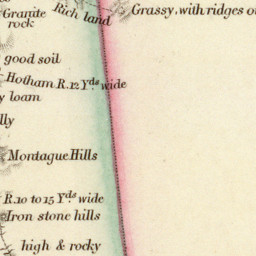 Granite
rock
Rich land
Grassy. with ridges
good soil
Hotham R. 12 Yds wide
loam
Montague Hills
R. 10 to 15 Yds wide
Iron stone hills
high & rocky